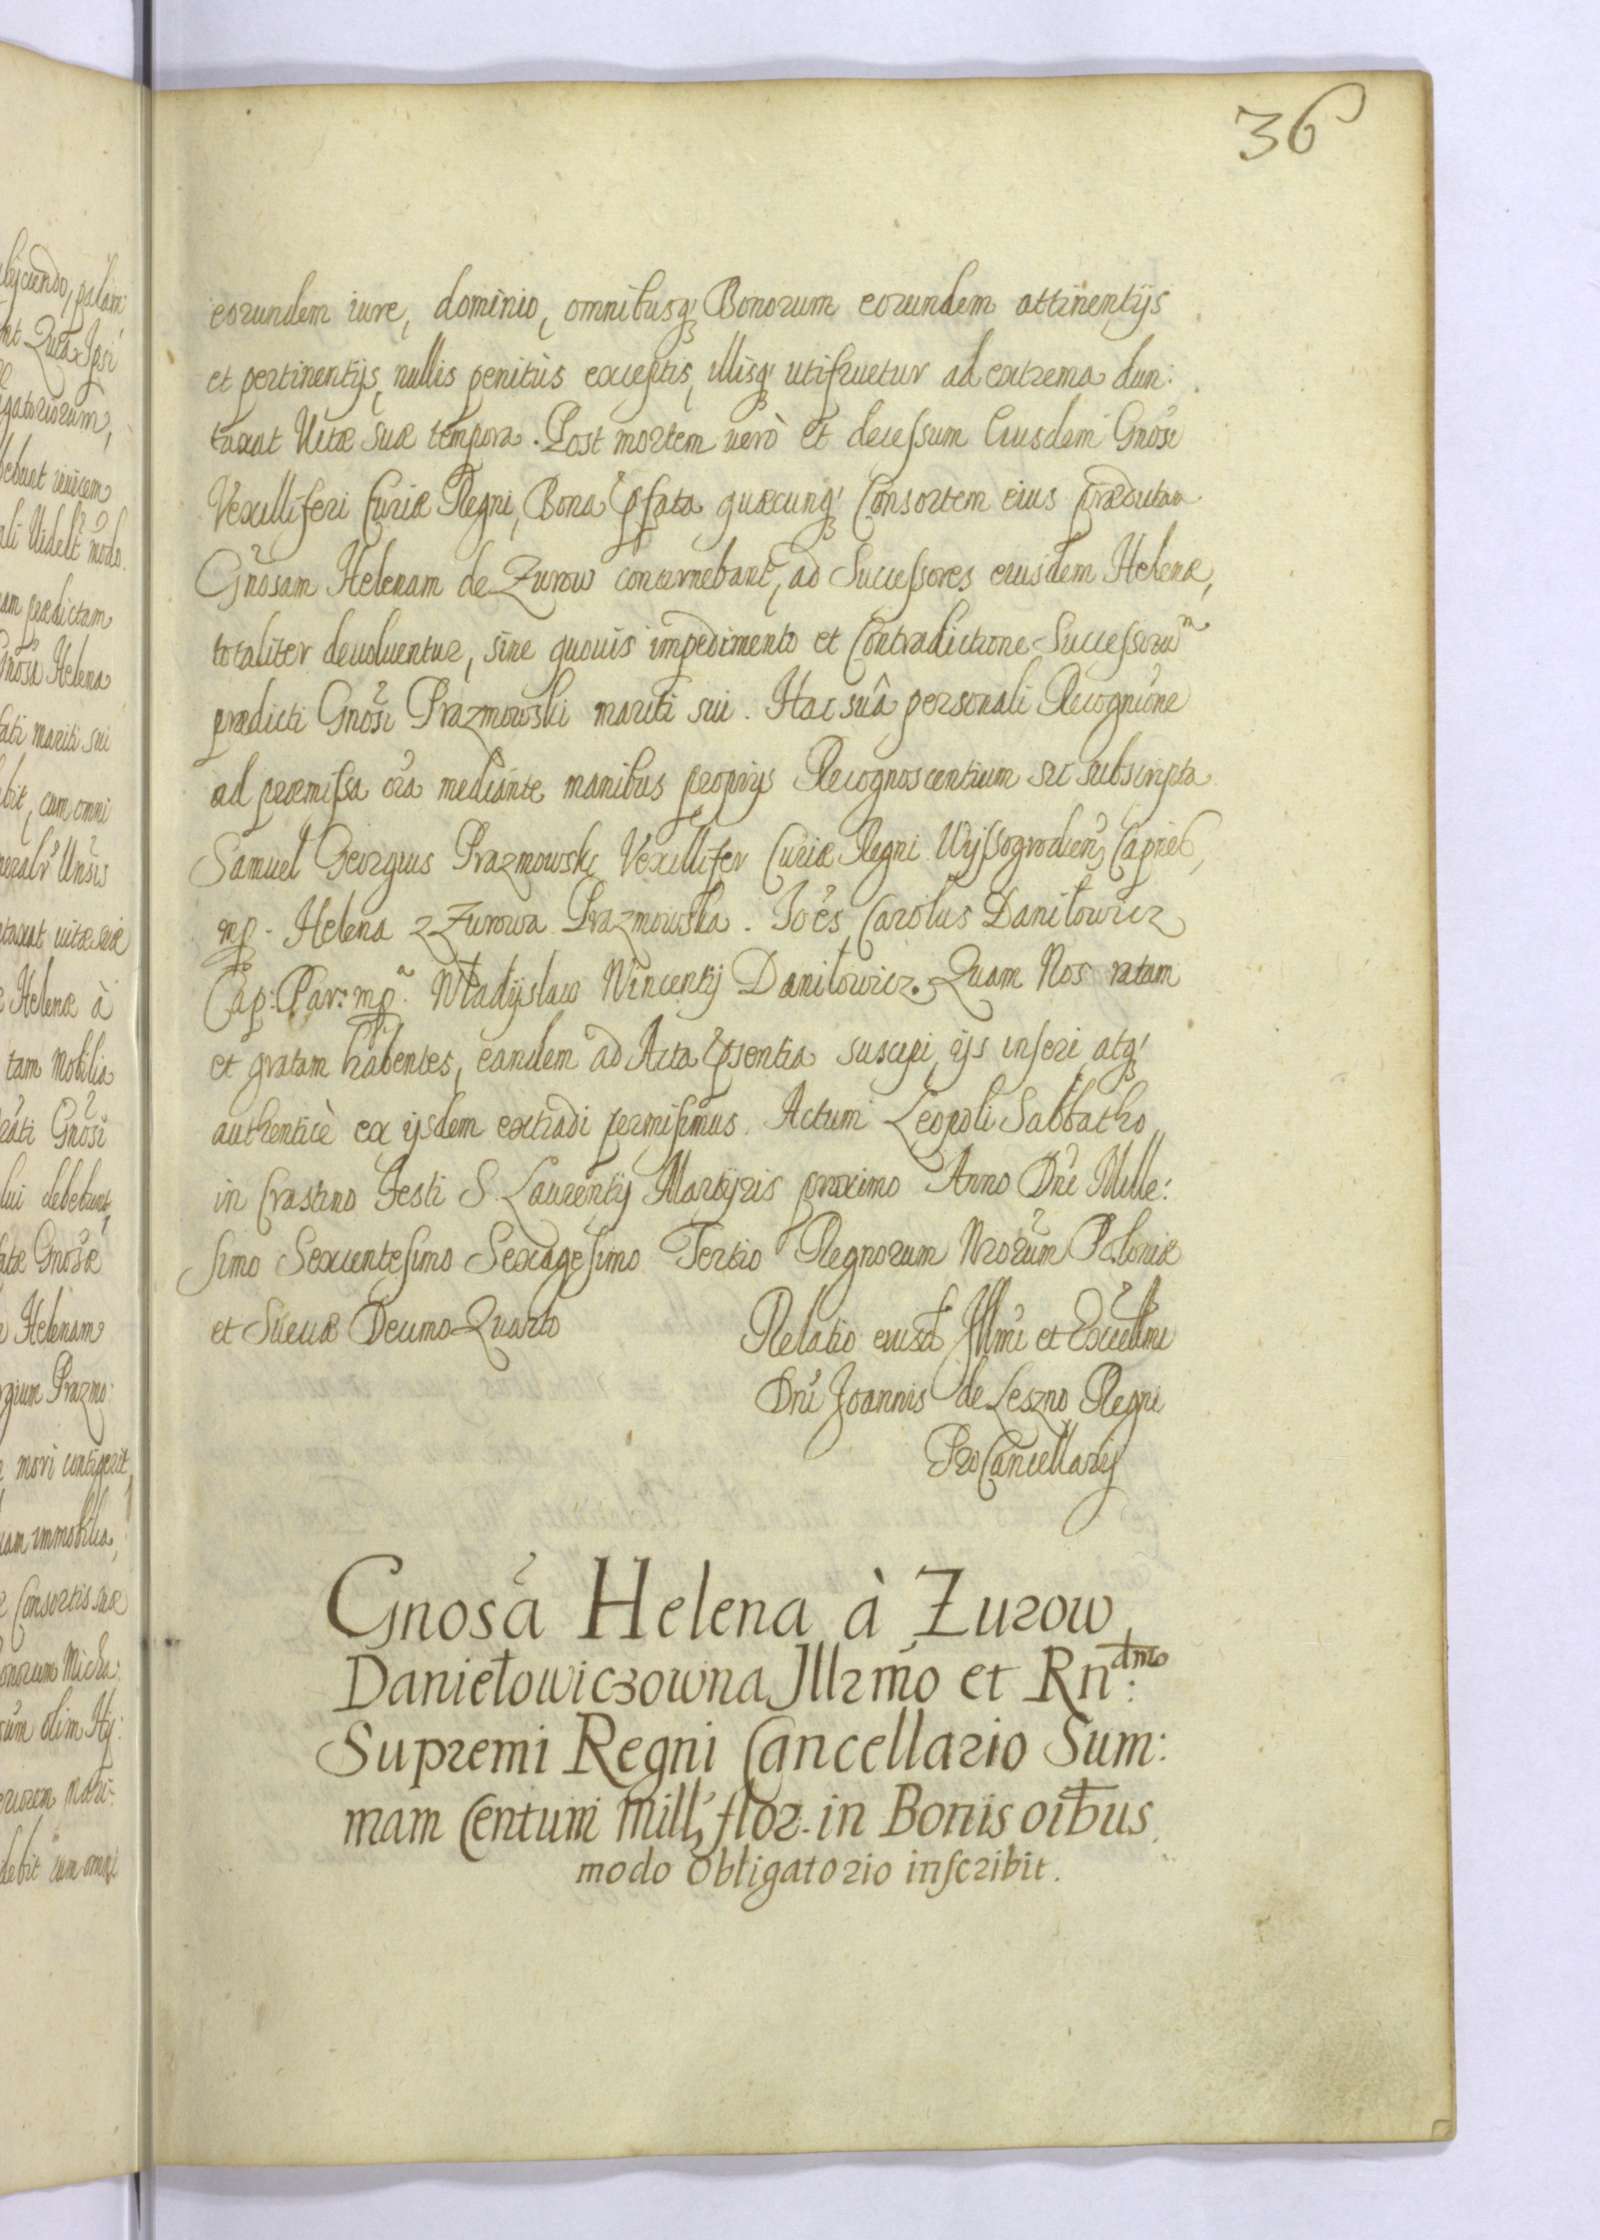 36
eorundem iure, dominio, omnibusq; Bonorum eorundem attinentijs
et pertinentijs, nullis penitùs exceptis, illisq; utifruetur ad extrema dun:
taxat Vitæ suæ tempora. Post mortem verò et decessum Eiusdem Gnosi
Vexilliferi Curiæ Regni, Bona pfata quæcunq; Consortem eius Prædictam
Gnosam Helenam de Zurow concernebant, ad Successores eiusdem Helenæ,
totaliter devoluentur, sine quouis impedimento et Contradictione Successoru
prædicti Gnosi Prazmowski mariti sui. Hac suâ personali Recognione
ad præmissa oia mediante manibus proprijs Recognoscentium sic subscripta
Samuel Georgius Prazmowski Vexillifer Curiæ Regni Wyssogrodien Capneus
mp. Helena z Zurowa Prazmowska. Joes Carolus Daniłowicz
Cap: Par: mp. Władysław Wincenty Daniłowicz. Quam Nos ratam
et gratam habentes, eandem ad Acta psentia suscipi, ijs inseri, atq;
authenticè ex ijsdem extradi permisimus. Actum Leopoli Sabbatho
in Crastino Festi S. Laurentij Martyris proximo Anno Dni Mille:
simo Sexcentesimo Sexagesimo Tertio Regnorum Nrorum Poloniæ
et Sueciæ Decimo-Quarto
Relatio eiusd Illmi et Excellmi
Dni Joannis de Leszno Regni
ProCancellarij
Gnosa Helena à Zurow
Daniełowiczowna Illrmo et Rndmo:
Supremi Regni Cancellario Sum:
mam Centum mill, flor. in Bonis oibus
modo obligatorio inscribit.